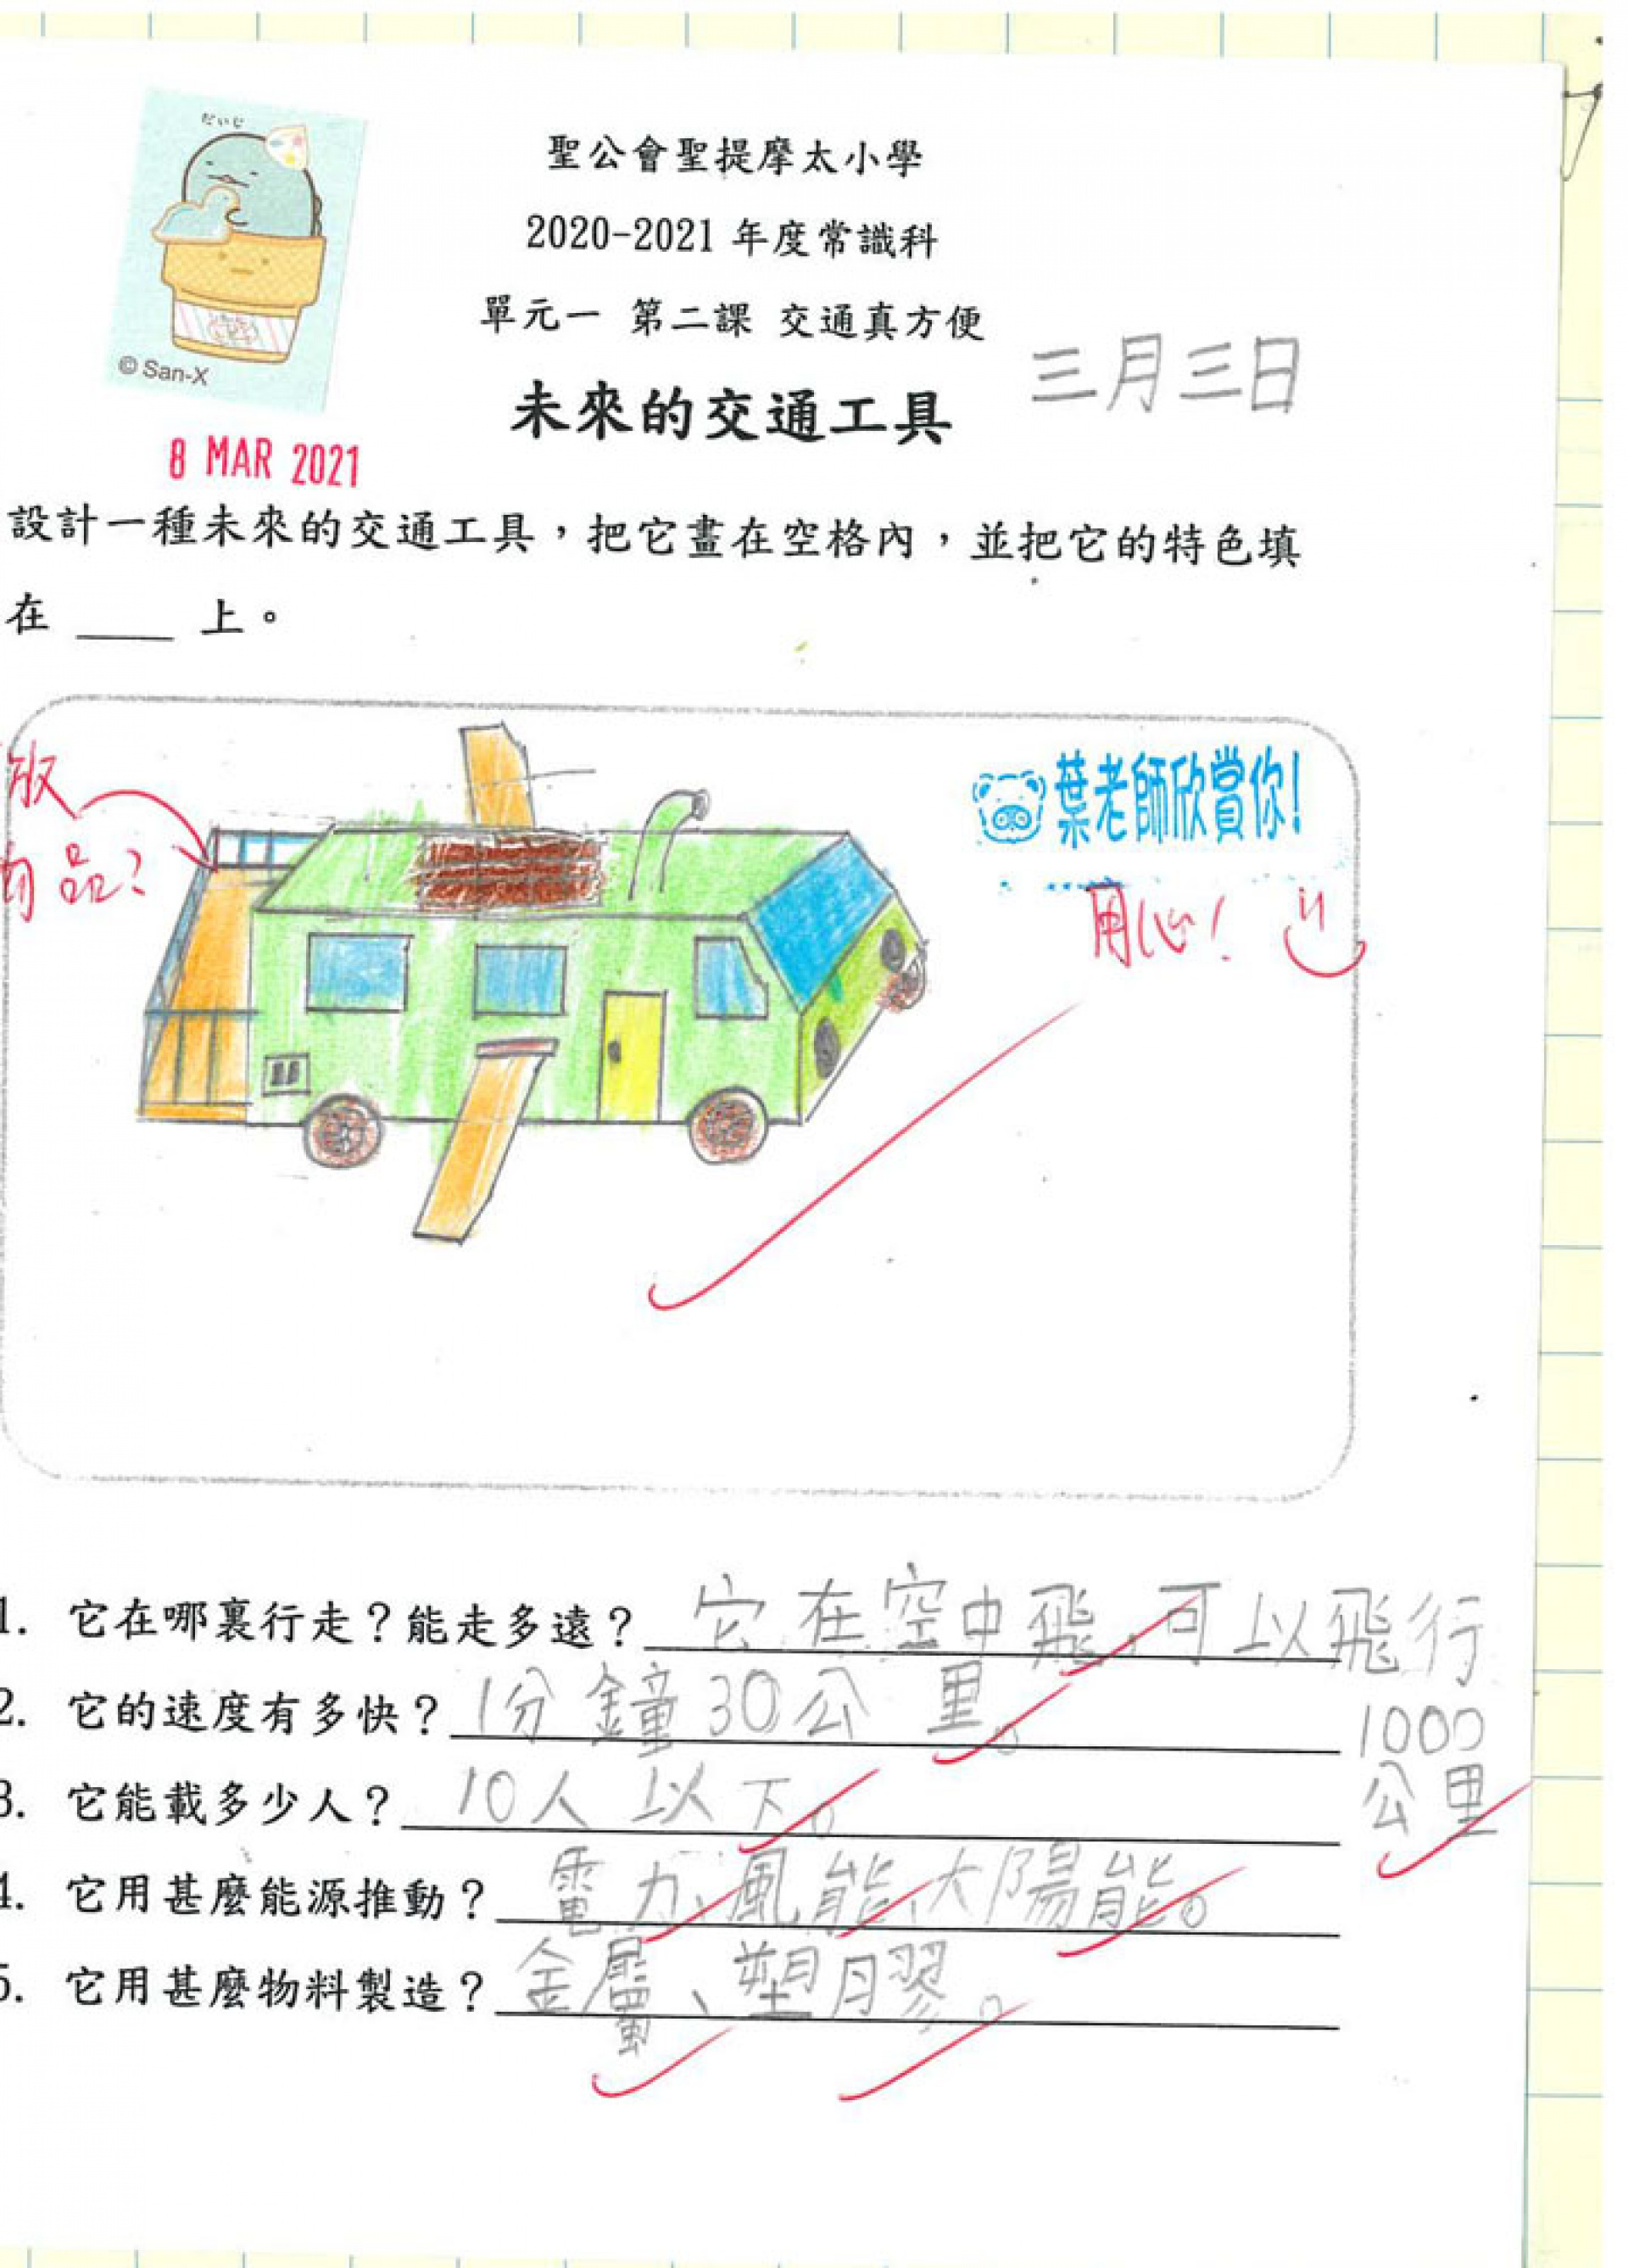 だいじ
© San-X
聖公會聖提摩太小學
2020-2021 年度常識科
單元一 第二課 交通真方便
三月三日
未來的交通工具
8 MAR 2021
設計一種未來的交通工具，把它畫在空格內，並把它的特色填
在 ___ 上。
放
品？
葉老師欣賞你！
用心！
1. 它在哪裏行走？能走多遠？它在空中飛，可以飛行
1000
公里
2. 它的速度有多快？1分鐘30公里。
3. 它能載多少人？10人以下。
4. 它用甚麼能源推動？電力、風能、太陽能。
5. 它用甚麼物料製造？金屬、塑膠。